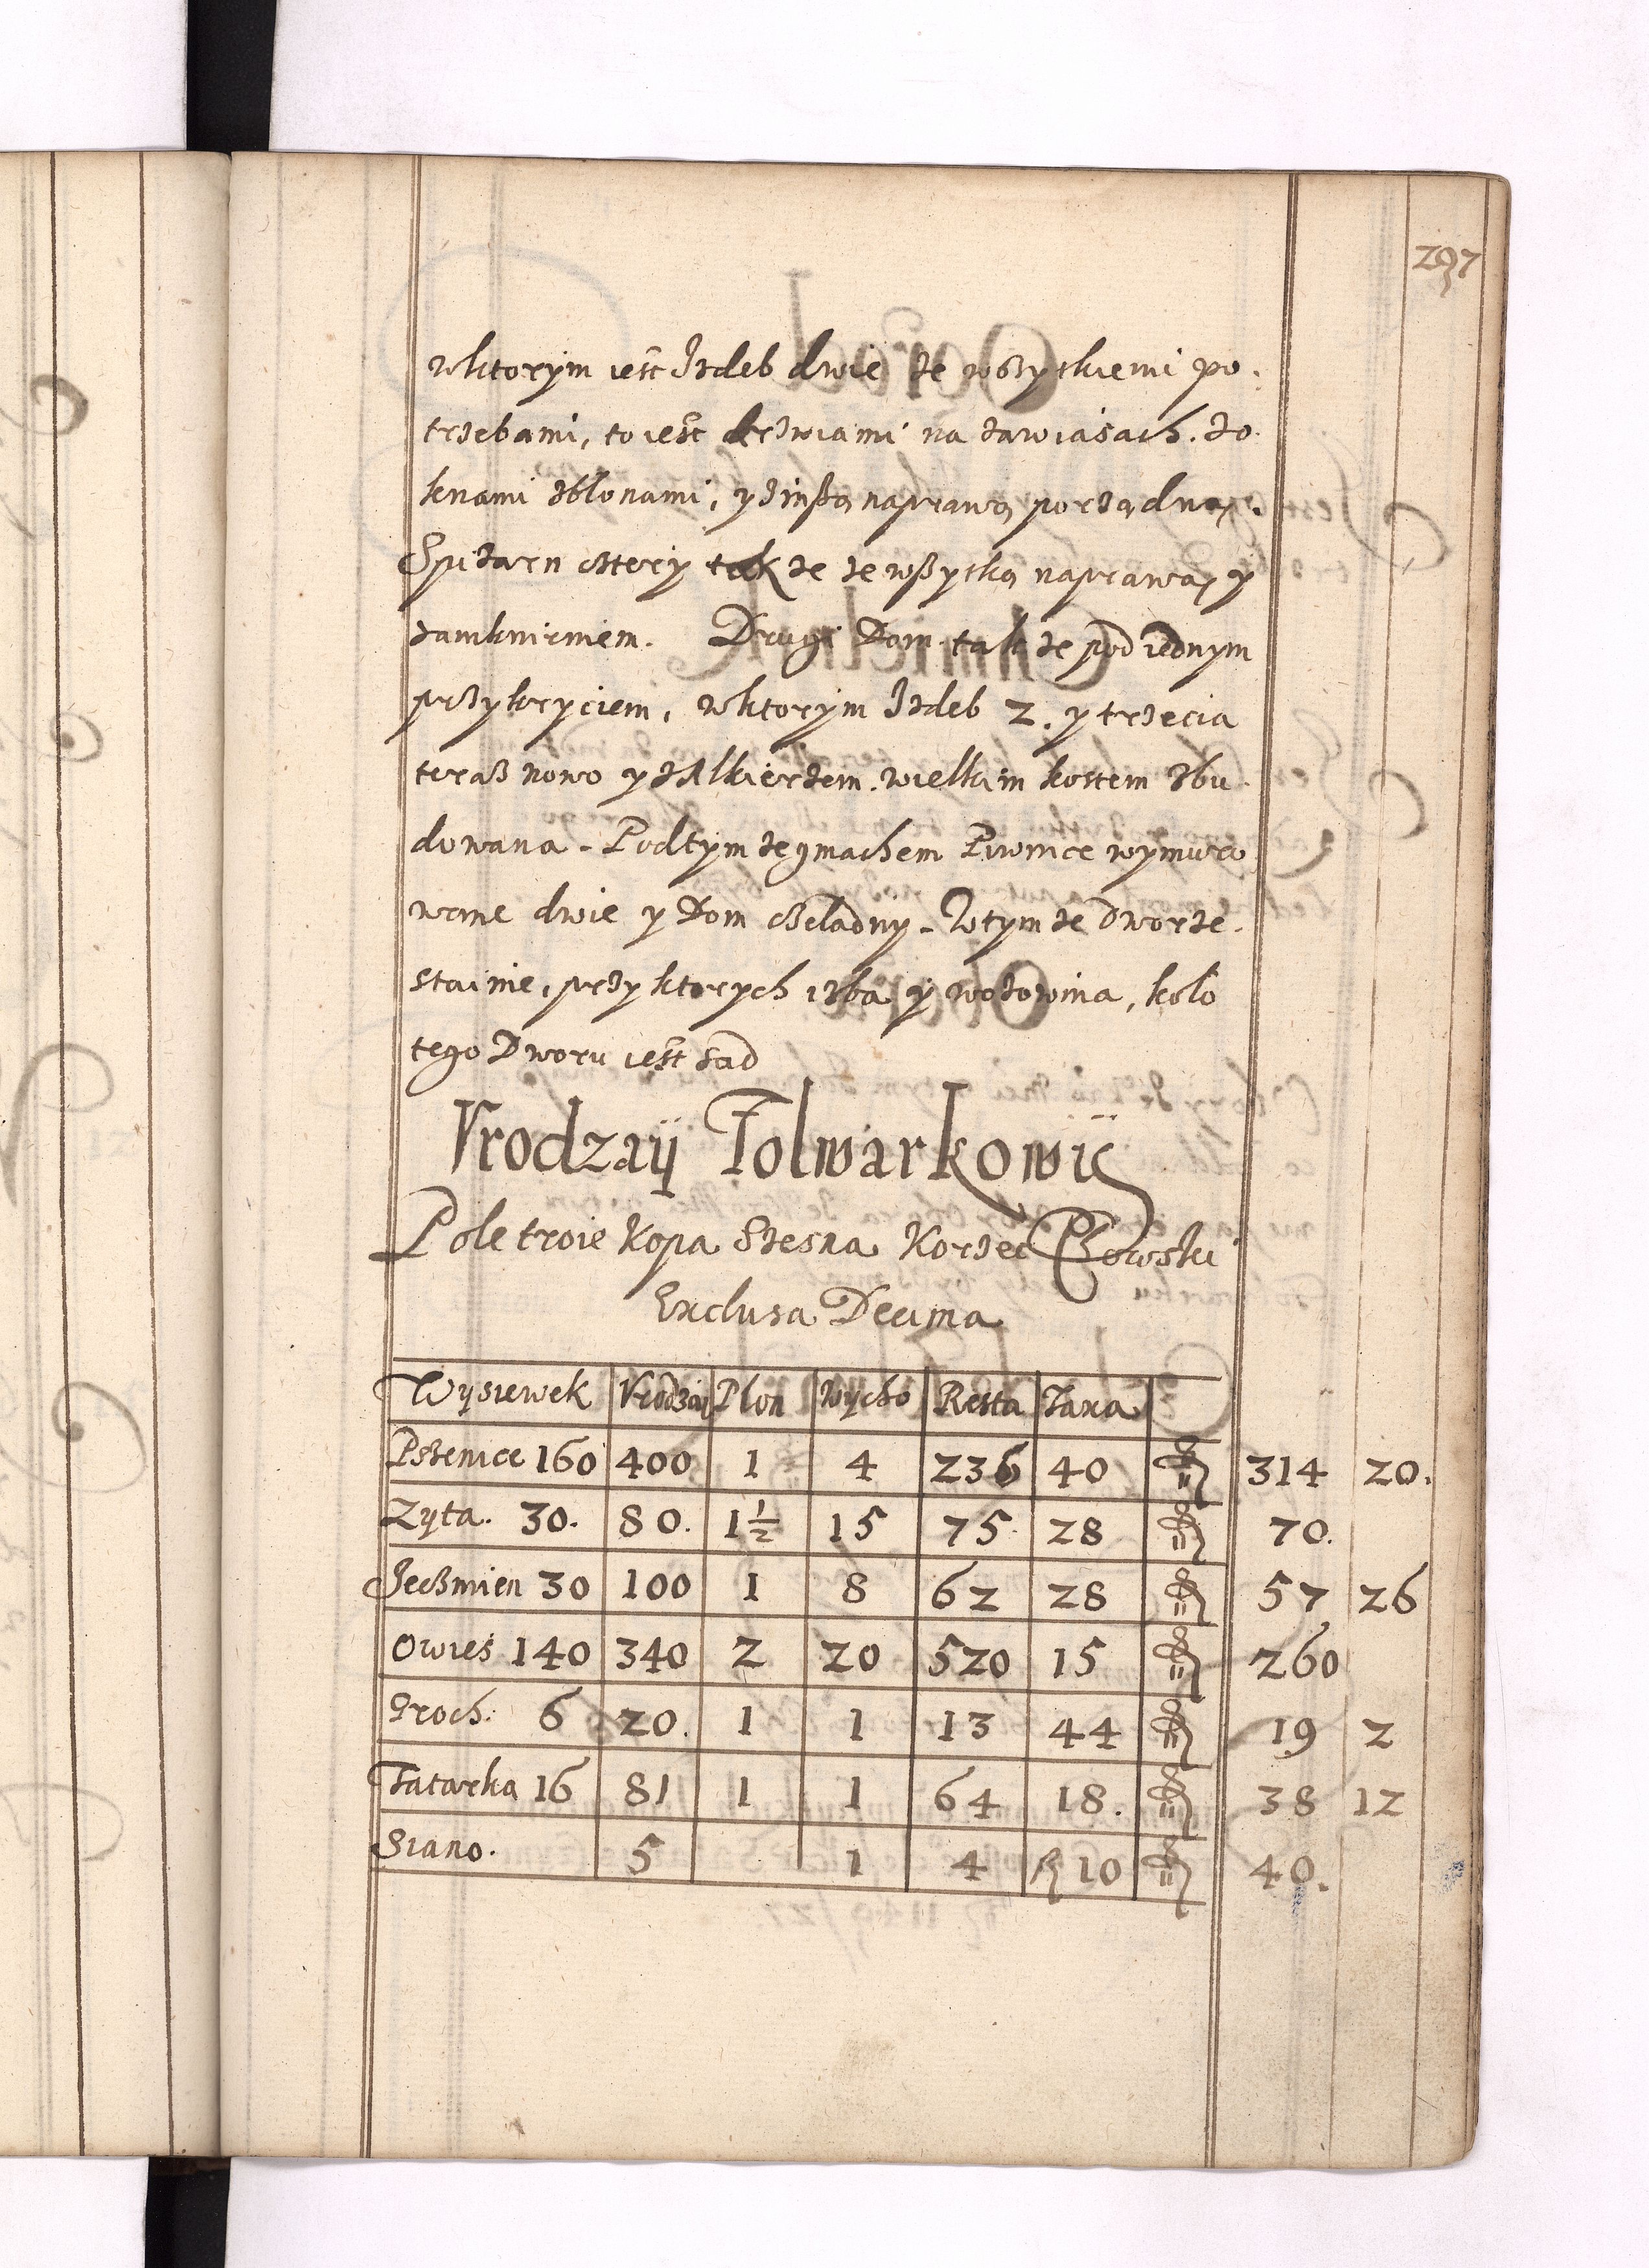 297
wktorym iest Izdeb dwie ze wszytkiemi po
trzebami, to iest drzwiami na zawiasach. zo
knami zblonami, y zinßą naprawą porządną.
Spizarn cztery tak ze ze wßytką naprawą y
zamknieniem. Drugi Dom tak ze pod iednym
przykryciem, wktorym Izdeb 2. y trzecia
teraß nowo y zAlkierzem. wielkim kosztem zbu
dowana. Podtym ze gmachem Piwnice wymuro
wane dwie y Dom czeladny. Wtym ze Dworze.
stainie, przy ktorych izba y wozownia, kolo
tego Dworu iest sad
Vrodzaÿ Folwarkowÿ
Pole troie Kopa Szesna Korzec
Exclusa Decima
Wysiewek Vrodzai Plon wycho Resta Taxa
Pszenice 160 400 1 4 236 40 314 20.
Zyta. 30. 80. 1½ 15 75. 28 70.
Jeczmien 30 100 1 8 62 28 57 26
Owies 140 340 2 20 520 15 260
Groch. 6 20. 1 1 13 44 19 2
Tatarka 16 81 1 1 64 18. 38 12
Siano. 5 1 4 10 40.